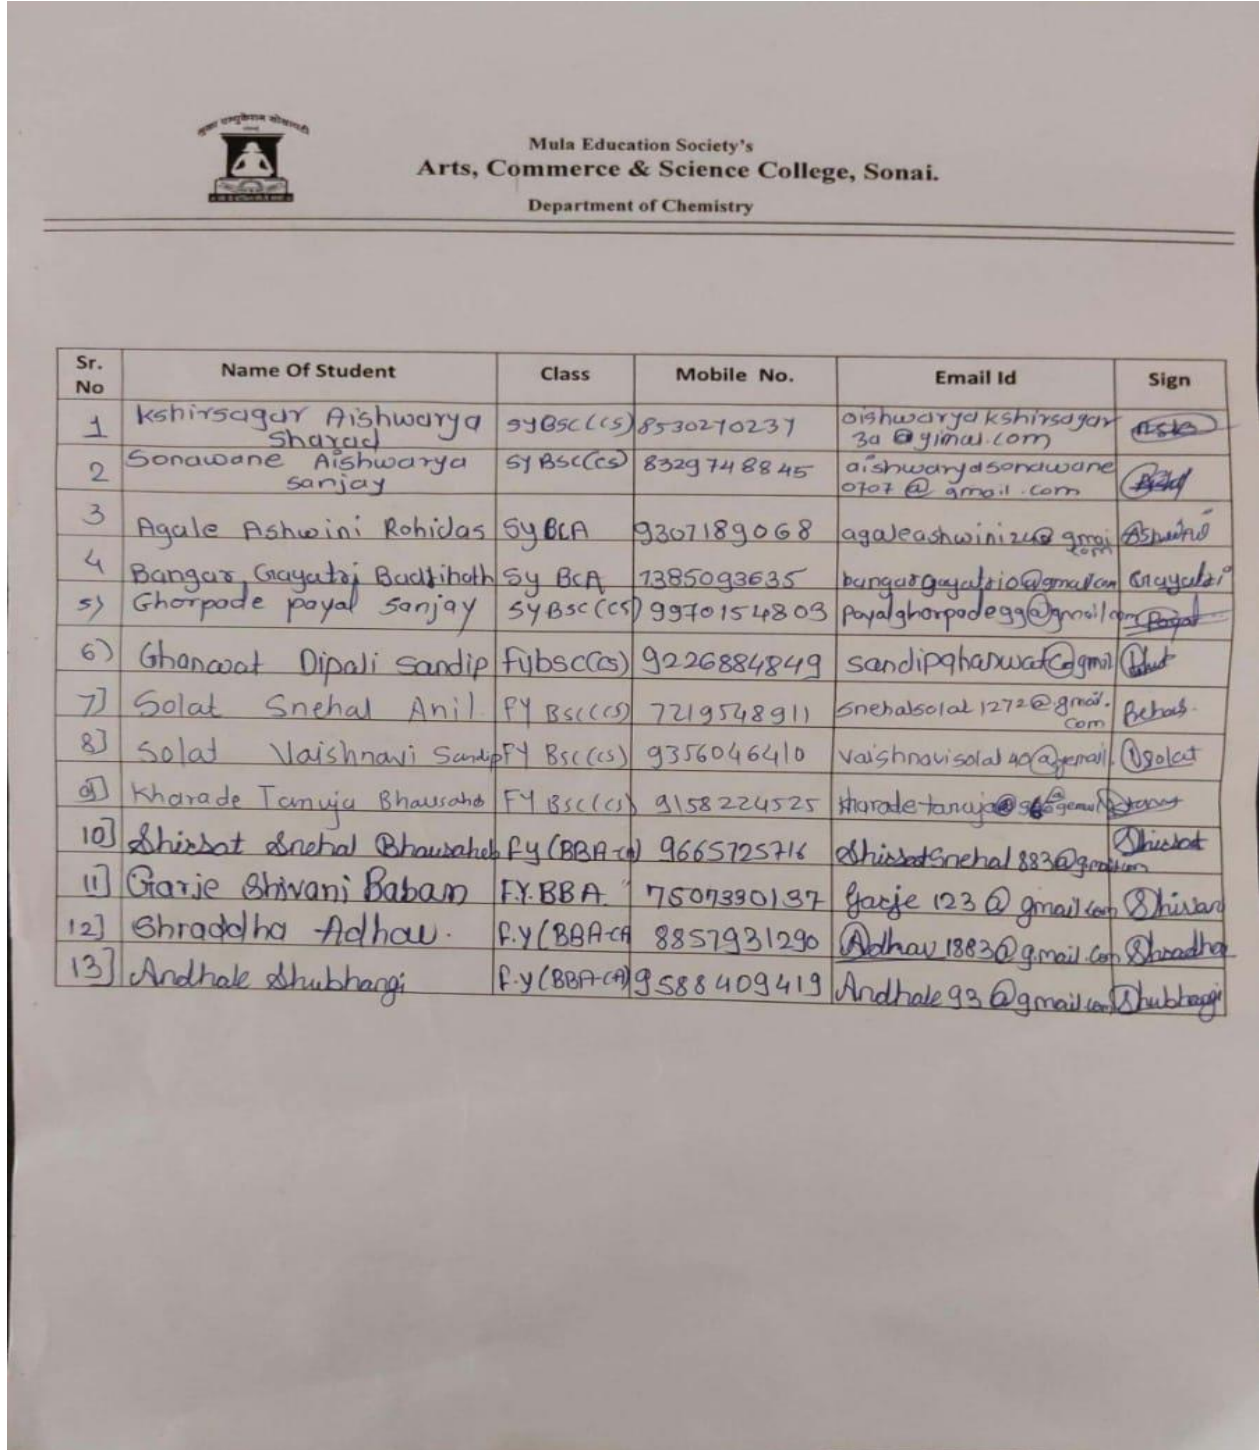 मुळा एज्युकेशन सोसायटी
Mula Education Society's
Arts, Commerce & Science College, Sonai.
Department of Chemistry
Sr. No Name Of Student Class Mobile No. Email Id Sign
1 Kshirsagar Aishwarya Sharad SYBSC(CS) 8530270237 aishwaryakshirsagar 3a @gimal.com
2 Sonawane Aishwarya Sanjay SYBSC(CS) 8329748845 aishwaryasonawane 0707 @ gmail.com
3 Agale Ashwini Rohidas SyBCA 9307189068 agaleashwini24@gmai com Ashwini
4 Bangar Gayatri Sy BCA 7385093635 Gayatri
5) Ghorpade payal Sanjay SYBSC(CS) 9970154803 payalghorpade99@gmail.com Payal
6) Ghanwat Dipali Sandip Fybsc(cs) 9226884849
7] Solat Snehal Anil FY BSC(CS) 7219548911 snehalsolat1272@gmail.com
8] Solat Vaishnavi Sandip FY BSC(CS) 9356046410 Vsolat
9] Kharade Tanuja Bhausaheb FY BSC(CS) 9158224525
10] Shirsat Snehal Bhausaheb F.Y(BBA-CA) 9665725716 Shirsat
11] Garje Shivani Baban F.Y.BBA 7507330137 Garje 123 @ gmail.com Shivani
12] Shraddha Adhav. F.Y(BBA-CA 8857931290 Adhav 1883@gmail.com Shradha
13] Andhale Shubhangi F.Y(BBA-CA) 9588409419 Andhale93@gmail.com Shubhangi